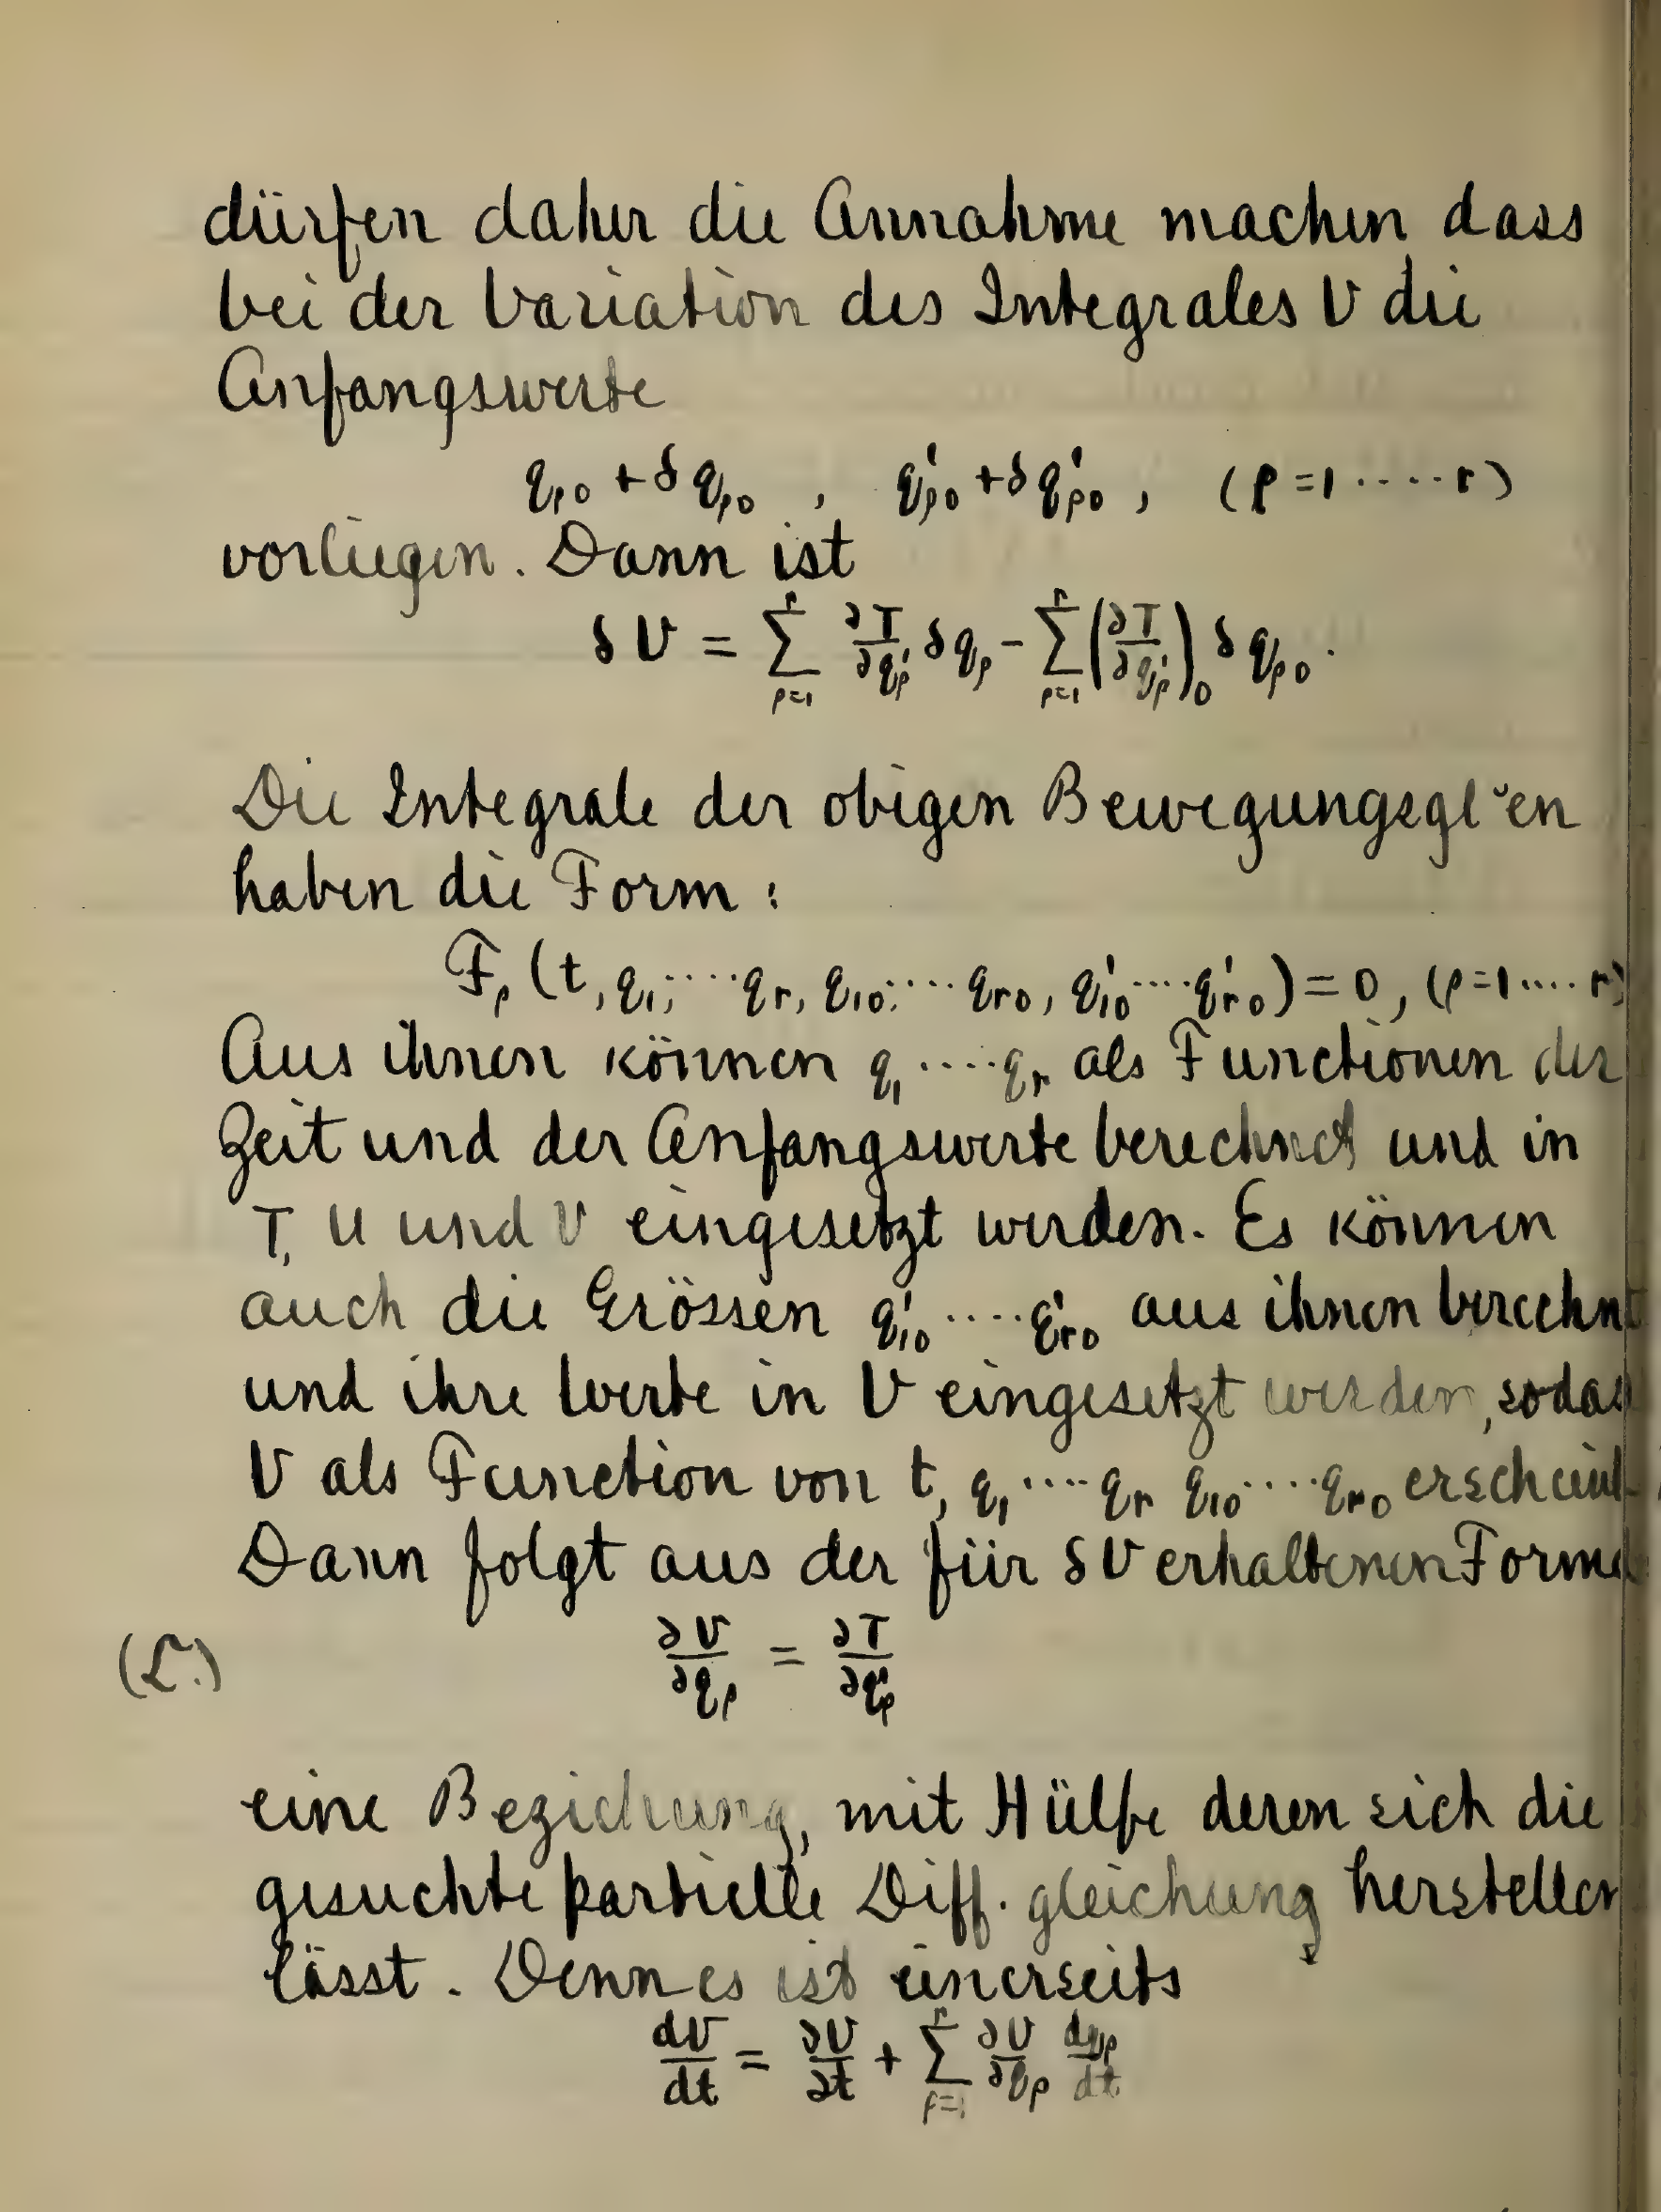 dürfen daher die Annahme machen dass
bei der Variation des Integrales V die
Anfangswerte
q_{ρ0} + δq_{ρ0} , q'_{ρ0} + δq'_{ρ0} , (ρ = 1 ····· r)
vorliegen. Dann ist
δV = \sum_{ρ=1}^{r} \frac{∂T}{∂q'_ρ} δq_ρ - \sum_{ρ=1}^{r} \left(\frac{∂T}{∂q'_ρ}\right)_0 δq_{ρ0}.
Die Integrale der obigen Bewegungsgl~en
haben die Form :
F_ρ (t, q_1, ···· q_r, q_{10}, ···· q_{r0}, q'_{10} ···· q'_{r0}) = 0, (ρ = 1 ···· r)
Aus ihnen können q_1 ····· q_r als Functionen der
Zeit und der Anfangswerte berechnet und in
T, U und V eingesetzt werden. Es können
auch die Grössen q'_{10} ····· q'_{r0} aus ihnen berechnt
und ihre Werte in V eingesetzt werden, sodas
V als Function von t, q_1 ···· q_r q_{10} ···· q_{r0} erscheint.
Dann folgt aus der für δV erhaltenen Formel
(L.) \frac{∂V}{∂q_ρ} = \frac{∂T}{∂q'_ρ}
eine Beziehung, mit Hülfe deren sich die
gesuchte partielle Diff. gleichung herstellen
lässt. Denn es ist einerseits
\frac{dV}{dt} = \frac{∂V}{∂t} + \sum_{ρ=1}^{r} \frac{∂V}{∂q_ρ} \frac{dq_ρ}{dt}